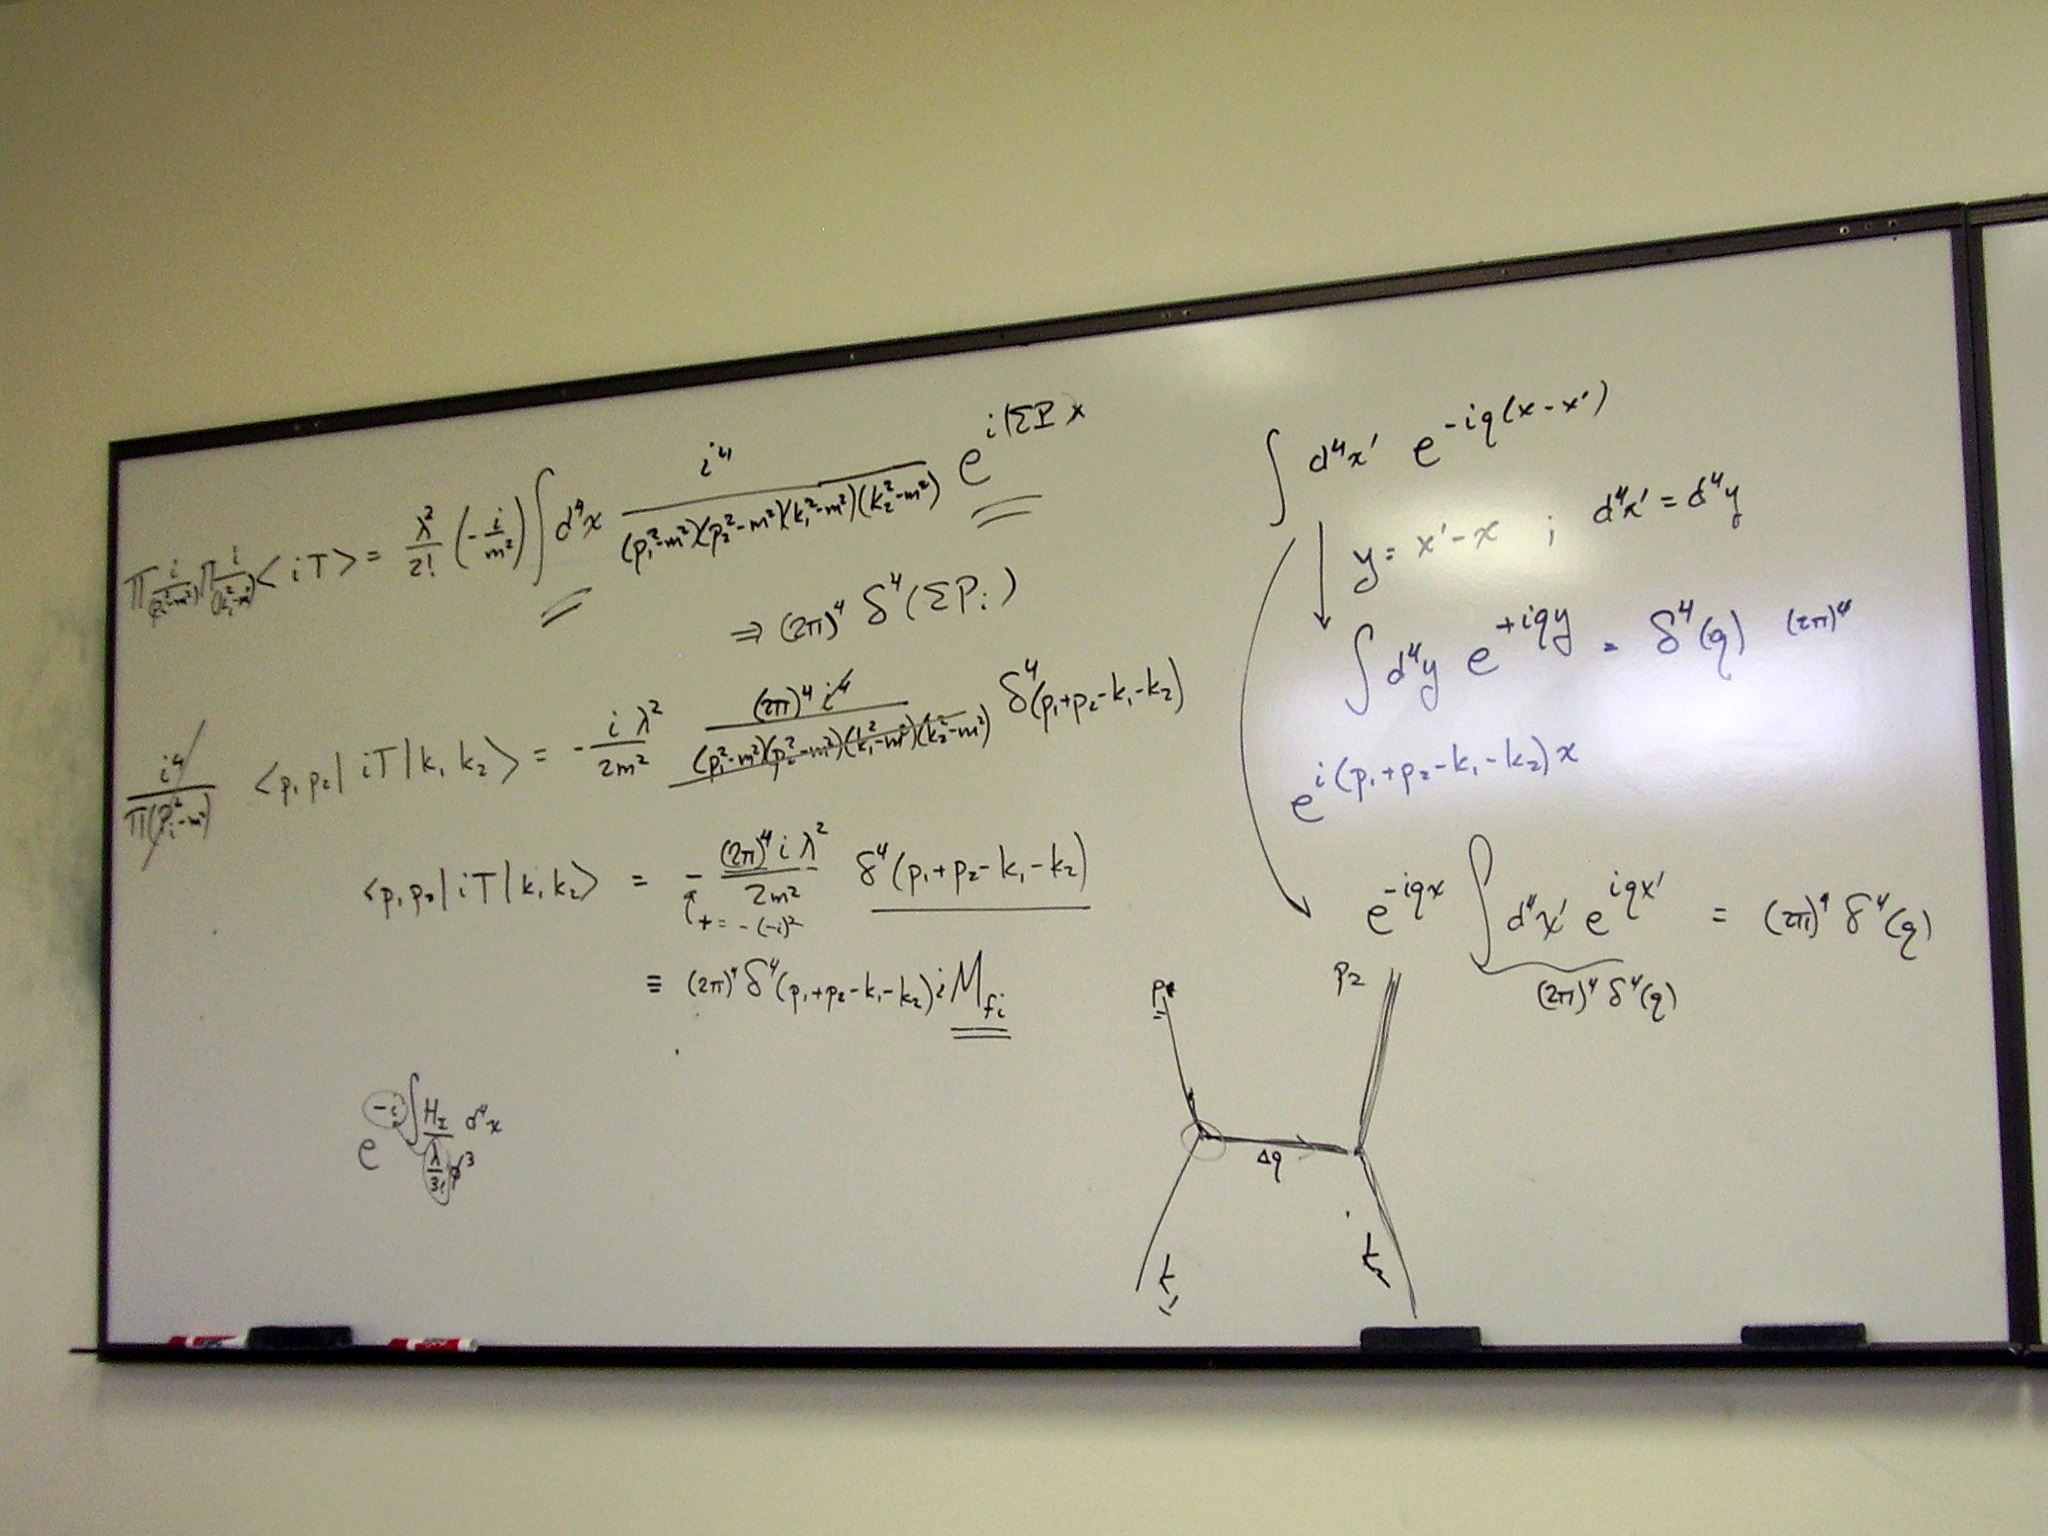 π i/(p_i²-m²) π i/(k_i²-m²) <iT> = λ²/2! (-i/m²) ∫ d⁴x i⁴/(p₁²-m²)(p₂²-m²)(k₁²-m²)(k₂²-m²) e^{i(ΣP)x}
⇒ (2π)⁴ δ⁴(ΣPᵢ)
i⁴/π(Pᵢ²-m²) <p₁p₂|iT|k₁k₂> = -iλ²/2m² (2π)⁴i⁴/(p₁²-m²)(p₂²-m²)(k₁²-m²)(k₂²-m²) δ⁴(p₁+p₂-k₁-k₂)
<p₁p₂|iT|k₁k₂> = -(2π)⁴iλ²/2m² δ⁴(p₁+p₂-k₁-k₂)
+ = -(-i)²
≡ (2π)⁴ δ⁴(p₁+p₂-k₁-k₂) i M_fi
e^{-i∫ H_I d⁴x}
λ/3! φ³
∫ d⁴x' e^{-iq(x-x')}
y = x'-x ; d⁴x' = d⁴y
∫ d⁴y e^{+iqy} = δ⁴(q) (2π)⁴
e^{i(p₁+p₂-k₁-k₂)x}
e^{-iqx} ∫ d⁴x' e^{iqx'} = (2π)⁴ δ⁴(q)
(2π)⁴ δ⁴(q)
p₁ p₂
Δq
k₁ k₂